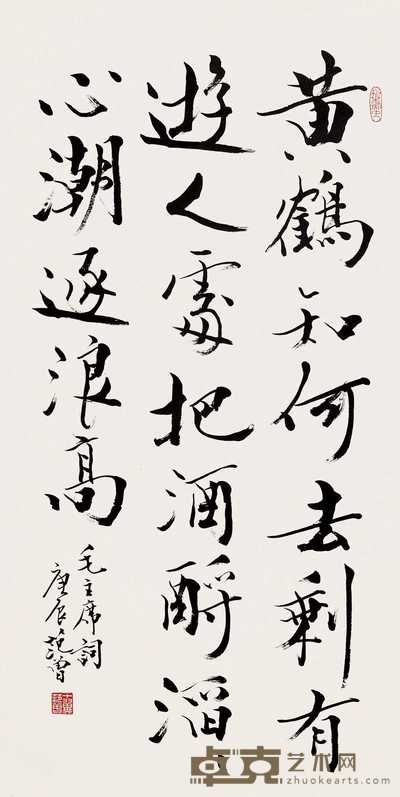 黄鶴知何去剩有
遊人處把酒酹滔々
心潮逐浪高
毛主席詞
庚辰范曾
卓克艺术网
zhuokearts.com